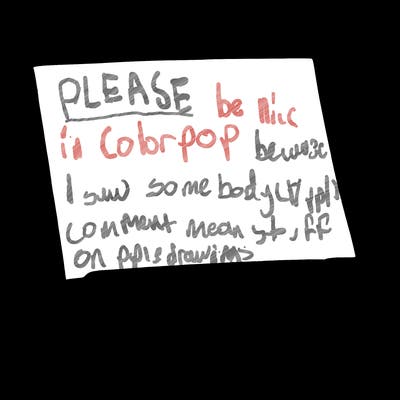 PLEASE be nice
in Colorpop because
I saw somebody
comment mean stuff
on ppls drawings